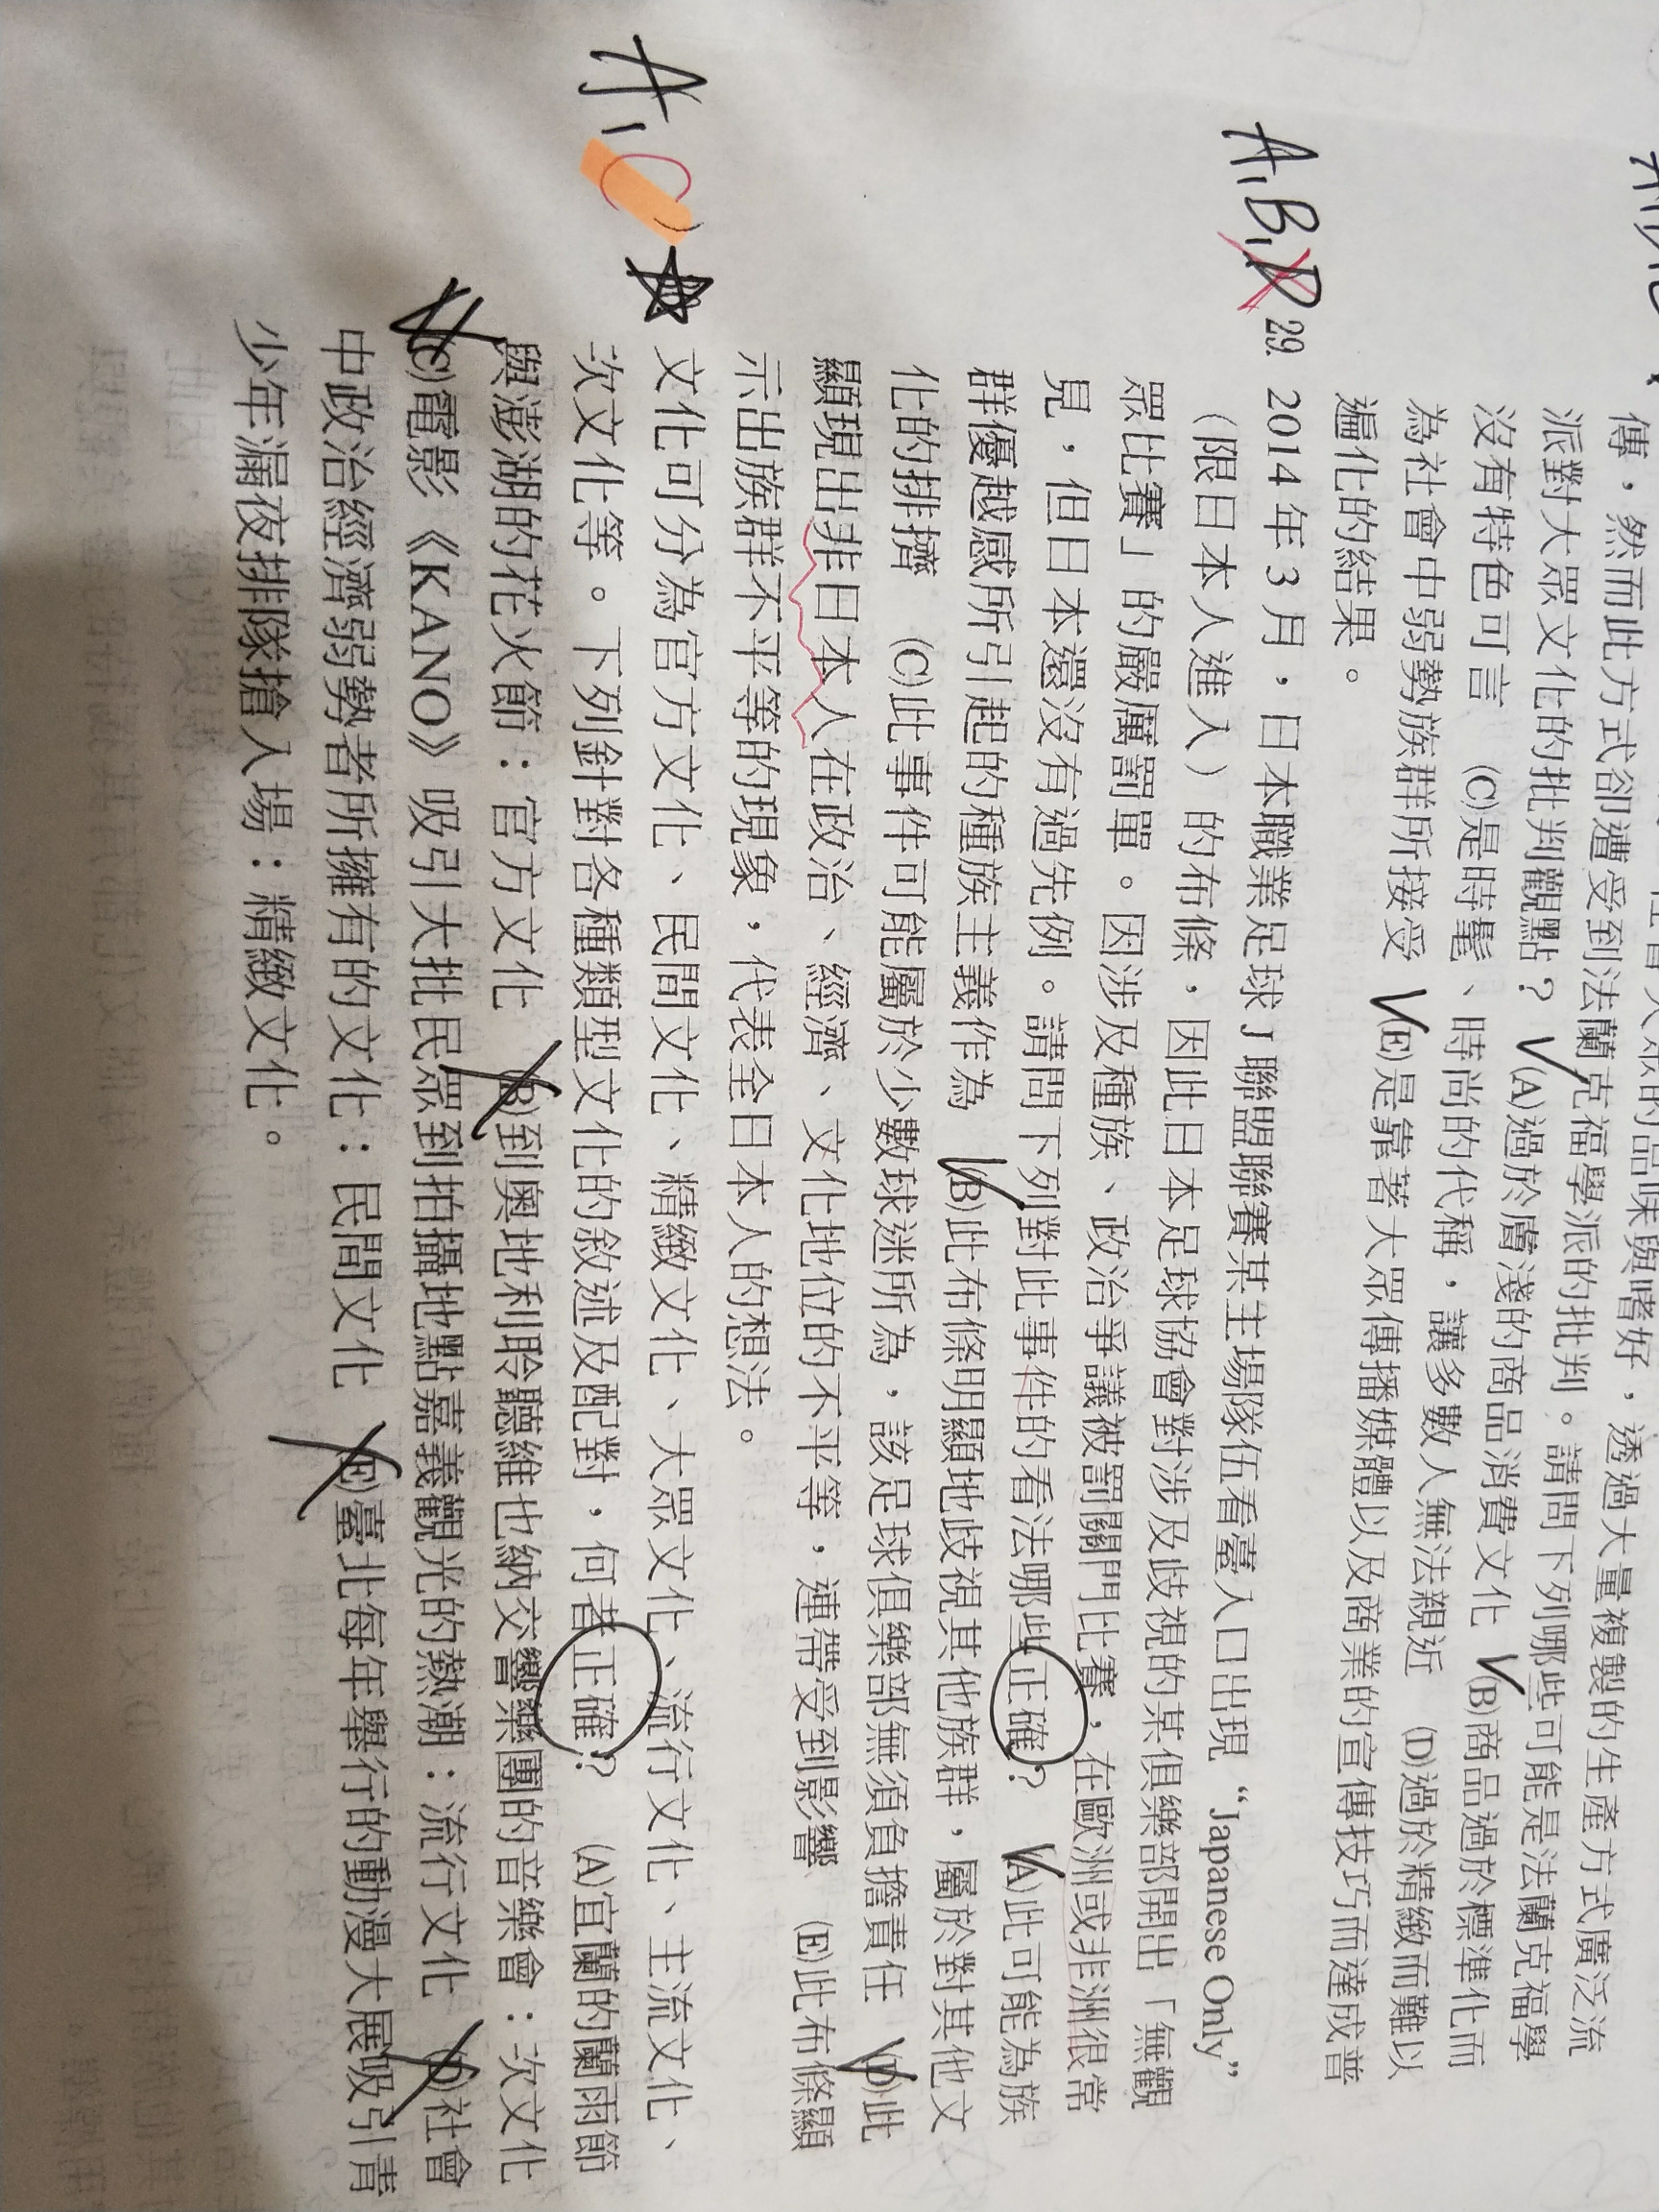 傳，然而此方式卻遭受到法蘭克福學派的批判。請問下列哪些可能是法蘭克福學
派對大眾文化的批判觀點？ (A)過於膚淺的商品消費文化 (B)商品過於標準化而
沒有特色可言 (C)是時髦、時尚的代稱，讓多數人無法親近 (D)過於精緻而難以
為社會中弱勢族群所接受 (E)是靠著大眾傳播媒體以及商業的宣傳技巧而達成普
遍化的結果。
A, B, D 29. 2014 年 3 月，日本職業足球 J 聯盟聯賽某主場隊伍看臺入口出現 “Japanese Only”
（限日本人進入）的布條，因此日本足球協會對涉及歧視的某俱樂部開出「無觀
眾比賽」的嚴厲罰單。因涉及種族、政治爭議被罰關門比賽，在歐洲或非洲很常
見，但日本還沒有過先例。請問下列對此事件的看法哪些正確？ (A)此可能為族
群優越感所引起的種族主義作為 (B)此布條明顯地歧視其他族群，屬於對其他文
化的排擠 (C)此事件可能屬於少數球迷所為，該足球俱樂部無須負擔責任 (D)此
顯現出非日本人在政治、經濟、文化地位的不平等，連帶受到影響 (E)此布條顯
示出族群不平等的現象，代表全日本人的想法。
A, C 文化可分為官方文化、民間文化、精緻文化、大眾文化、流行文化、主流文化、
次文化等。下列針對各種類型文化的敘述及配對，何者正確？ (A)宜蘭的蘭雨節
與澎湖的花火節：官方文化 (B)到奧地利聆聽維也納交響樂團的音樂會：次文化
(C)電影《KANO》吸引大批民眾到拍攝地點嘉義觀光的熱潮：流行文化 (D)社會
中政治經濟弱勢者所擁有的文化：民間文化 (E)臺北每年舉行的動漫大展吸引青
少年漏夜排隊搶入場：精緻文化。